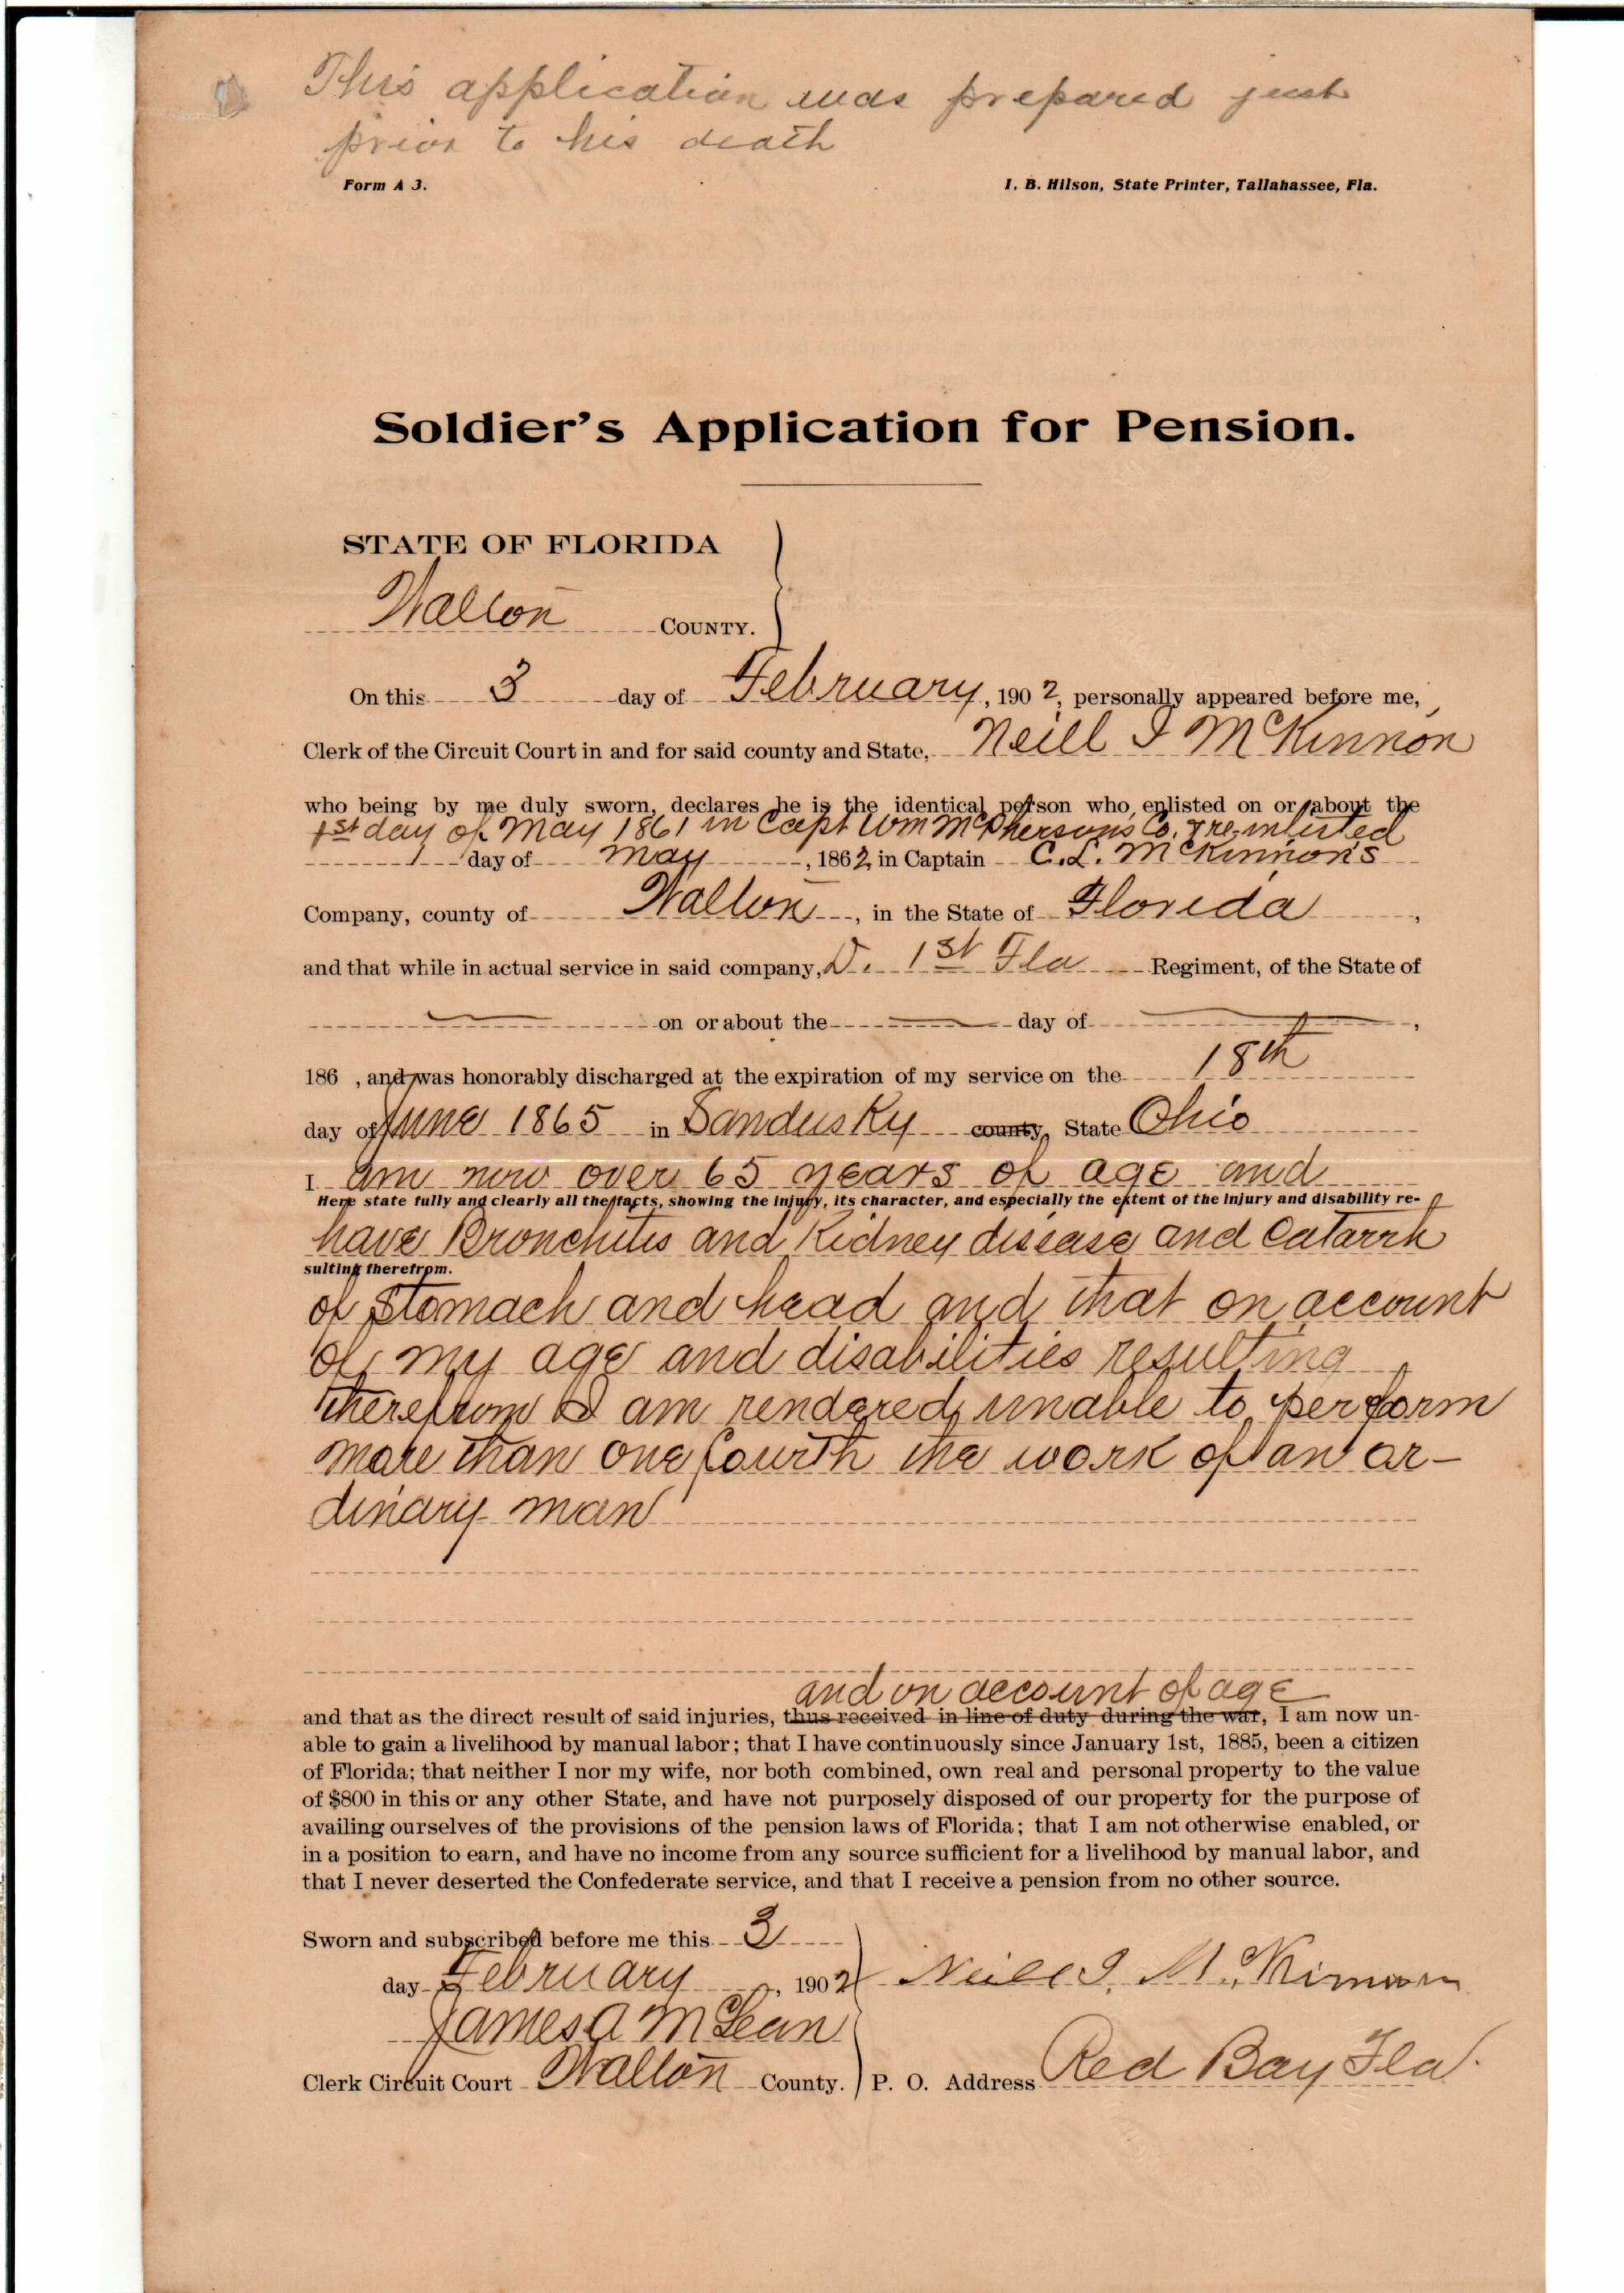 This application was prepared just
prior to his death
Form A 3.
I. B. Hilson, State Printer, Tallahassee, Fla.
Soldier's Application for Pension.
STATE OF FLORIDA
Walton COUNTY.
On this 3 day of February, 1902, personally appeared before me,
Clerk of the Circuit Court in and for said county and State, Neill J McKinnon
who being by me duly sworn, declares he is the identical person who enlisted on or about the
1st day of May 1861 in Capt Wm McPhersons Co. & re-inlisted
1 day of May, 1862 in Captain C. L. McKinnon's
Company, county of Walton, in the State of Florida,
and that while in actual service in said company, D. 1st Fla Regiment, of the State of
on or about the day of ,
186 , and was honorably discharged at the expiration of my service on the 18th
day of June 1865 in Sandusky county, State Ohio
I am now over 65 years of age and
Here state fully and clearly all the facts, showing the injury, its character, and especially the extent of the injury and disability re-
have Bronchitis and Kidney disease and Catarrh
sulting therefrom.
of Stomach and head and that on account
of my age and disabilities resulting
therefrom I am rendered unable to perform
more than one fourth the work of an or-
dinary man
and on account of age
and that as the direct result of said injuries, thus received in line of duty during the war, I am now un-
able to gain a livelihood by manual labor; that I have continuously since January 1st, 1885, been a citizen
of Florida; that neither I nor my wife, nor both combined, own real and personal property to the value
of $800 in this or any other State, and have not purposely disposed of our property for the purpose of
availing ourselves of the provisions of the pension laws of Florida; that I am not otherwise enabled, or
in a position to earn, and have no income from any source sufficient for a livelihood by manual labor, and
that I never deserted the Confederate service, and that I receive a pension from no other source.
Sworn and subscribed before me this 3
day February, 1902 Neill J. McKinnon
James A McLean
Clerk Circuit Court Walton County. P. O. Address Red Bay Fla.